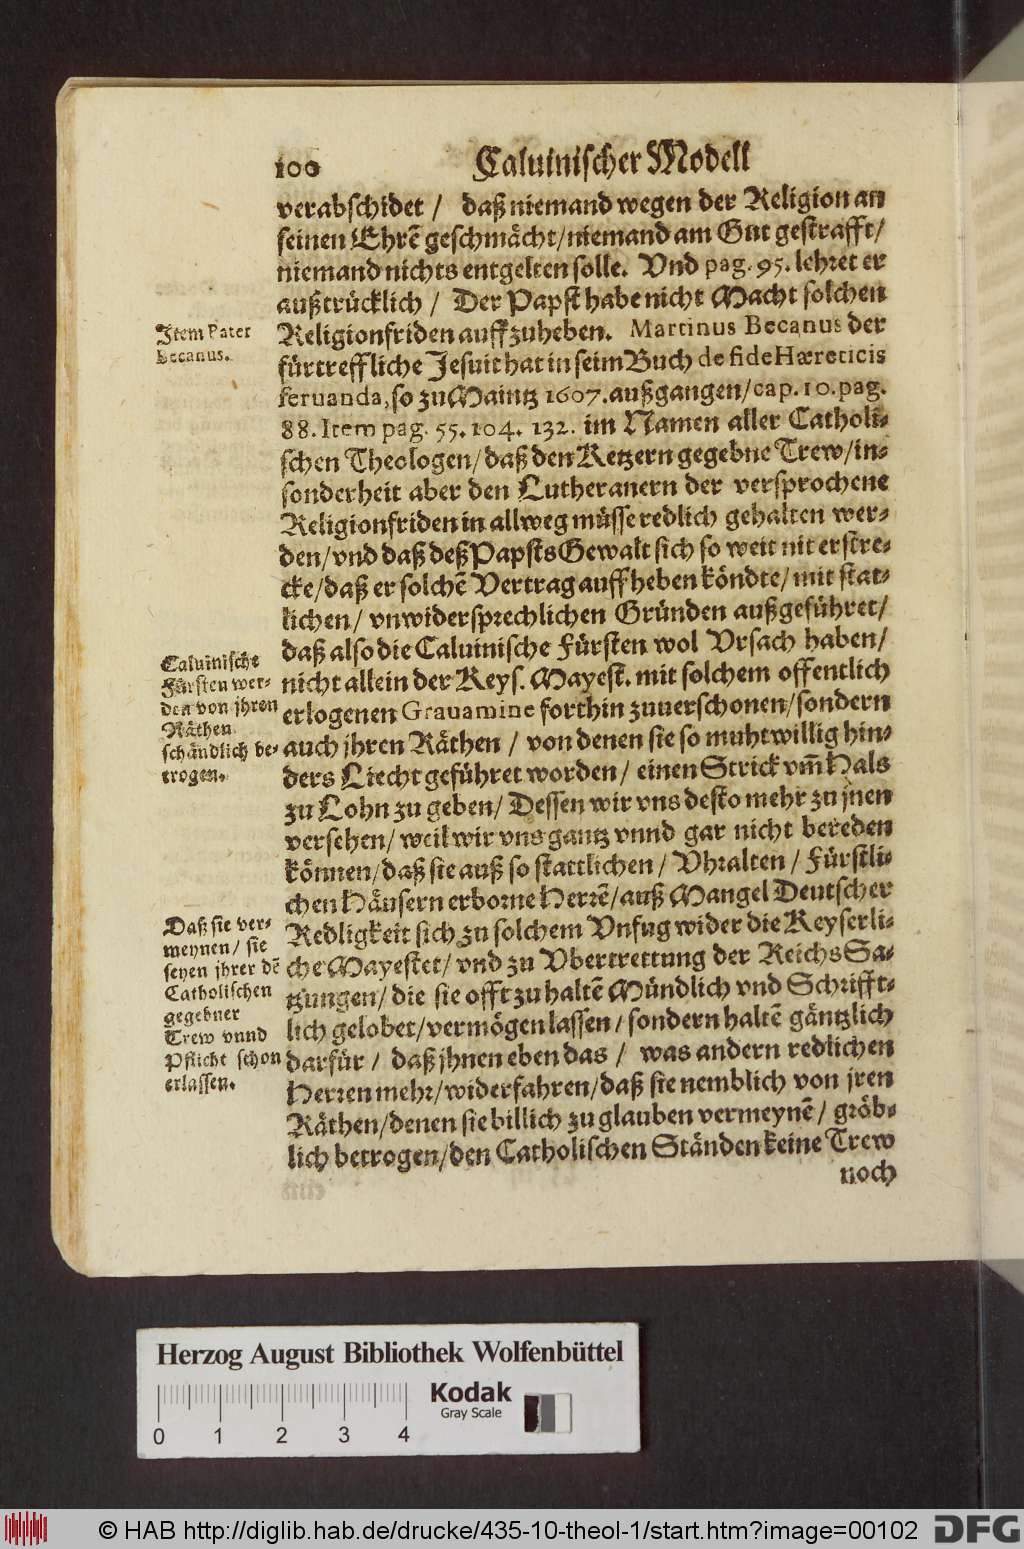 100 Caluinischer Modell
verabschidet / daß niemand wegen der Religion an
seinen Ehrē geschmächt/niemand am Gut gestrafft/
niemand nichts entgelten solle. Vnd pag. 95. lehret er
außtrücklich / Der Papst habe nicht Macht solchen
Religionfriden auffzuheben. Martinus Becanus der
fürtreffliche Jesuit hat in seim Buch de fide Hæreticis
seruanda, so zu Maintz 1607. außgangen/cap. 10. pag.
88. Item pag. 55. 104. 132. im Namen aller Catholi-
schen Theologen/daß den Ketzern gegebne Trew/in-
sonderheit aber den Lutheranern der versprochene
Religionfriden in allweg müsse redlich gehalten wer-
den/vnd daß deß Papsts Gewalt sich so weit nit erstre-
cke/daß er solchē Vertrag auffheben köndte/mit stat-
lichen/vnwidersprechlichen Gründen außgeführet/
daß also die Caluinische Fürsten wol Vrsach haben/
nicht allein der Keys. Mayest. mit solchem offentlich
erlogenen Grauamine forthin zuuerschonen/sondern
auch jhren Räthen / von denen sie so muhtwillig hin-
ders Liecht geführet worden / einen Strick vm̃ Hals
zu Lohn zu geben/ Dessen wir vns desto mehr zu jnen
versehen/weil wir vns gantz vnnd gar nicht bereden
können/daß sie auß so stattlichen / Vhralten / Fürstli-
chen Häusern erborne Herrē/auß Mangel Deutscher
Redligkeit sich zu solchem Vnfug wider die Keyserli-
che Mayestet/vnd zu Vbertrettung der Reichs Sa-
tzungen/die sie offt zu haltē Mündlich vnd Schrifft-
lich gelobet/vermögen lassen / sondern haltē gäntzlich
darfür / daß jhnen eben das / was andern redlichen
Herren mehr/widerfahren/daß sie nemblich von jren
Räthen/denen sie billich zu glauben vermeynē / gröb-
lich betrogen/den Catholischen Ständen keine Trew
noch
Item Pater
Becanus.
Caluinische
Fürsten wer-
den von jhren
Räthen
schändlich be-
trogen.
Daß sie ver-
meynen / sie
seyen jhrer dē
Catholischen
gegebner
Trew vnnd
Pflicht schon
erlassen.
Herzog August Bibliothek Wolfenbüttel
Kodak
Gray Scale
0 1 2 3 4
© HAB http://diglib.hab.de/drucke/435-10-theol-1/start.htm?image=00102
DFG